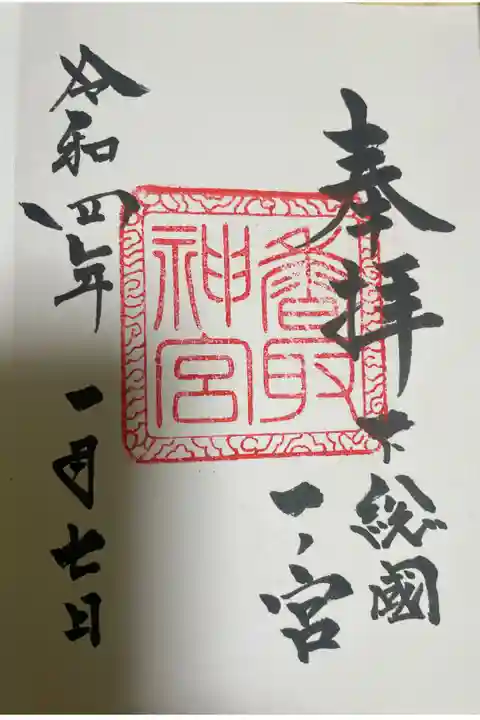 奉拝
下総國
一ノ宮
香取
神宮
令和四年一月七日